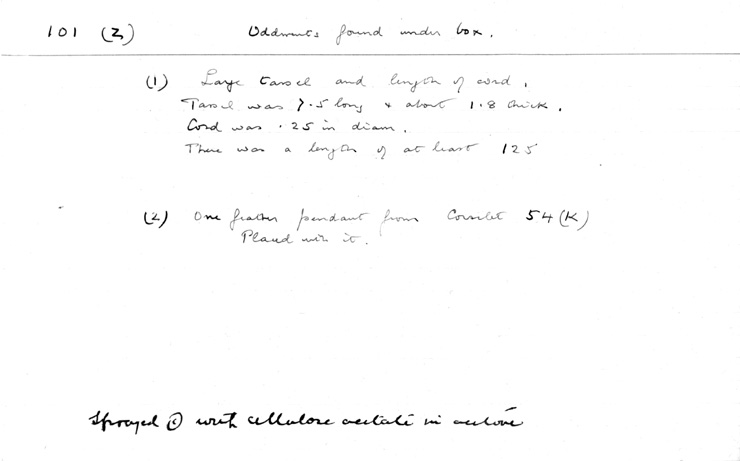 101 (Z) Oddments found under box.
(1) Large tassel and length of cord.
Tassel was 7.5 long & about 1.8 thick.
Cord was .25 in diam.
There was a length of at least 125
(2) One feather pendant from Corslet 54 (K)
Placed with it.
Sprayed with cellulose acetate in acetone